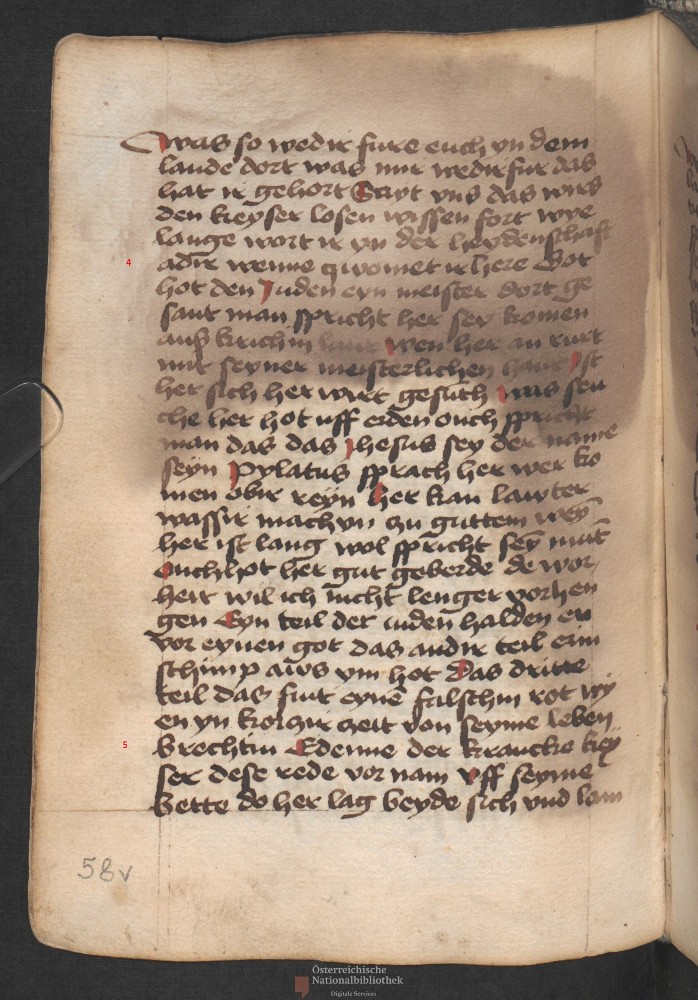 was so wedir fure euch yn dem
lande dort was mir wedirfur das
hat ir gehort Sayt vns das wirs
den keyser losen wissen fort wye
lange wort ir yn der heydenschaft
4
adir wenne qwomet ir here Got
hot den Juden eyn meister dort ge
sant man spricht her sey komen
aus krichin wen her an rurt
mit seyner meisterlichen hant Ist
her sich her wirt gesuth was seu
che her hot uff erden ouch spricht
man das das Jhesus sey der name
seyn Pylatus sprach her wer ko
men obir reyn her kan lawter
wassir machyn zu guttem wey
her ist lang wol spricht sey mut
ouch hot her gut geberde de wor
heit wil ich nicht lenger vorhen
gen Eyn teil der iuden halden en
vor eynen got das andir teil enn
schimp aws ym hot Das dritte
teil das furt eyne falschin rot wy
en yn korczir zeit von seyme leben
5
brechtin Edenne der krancke key
ser dese rede vor nam vff seyme
bette do her lag beyde sich vnd lam
58v
Österreichische
Nationalbibliothek
Digitale Services